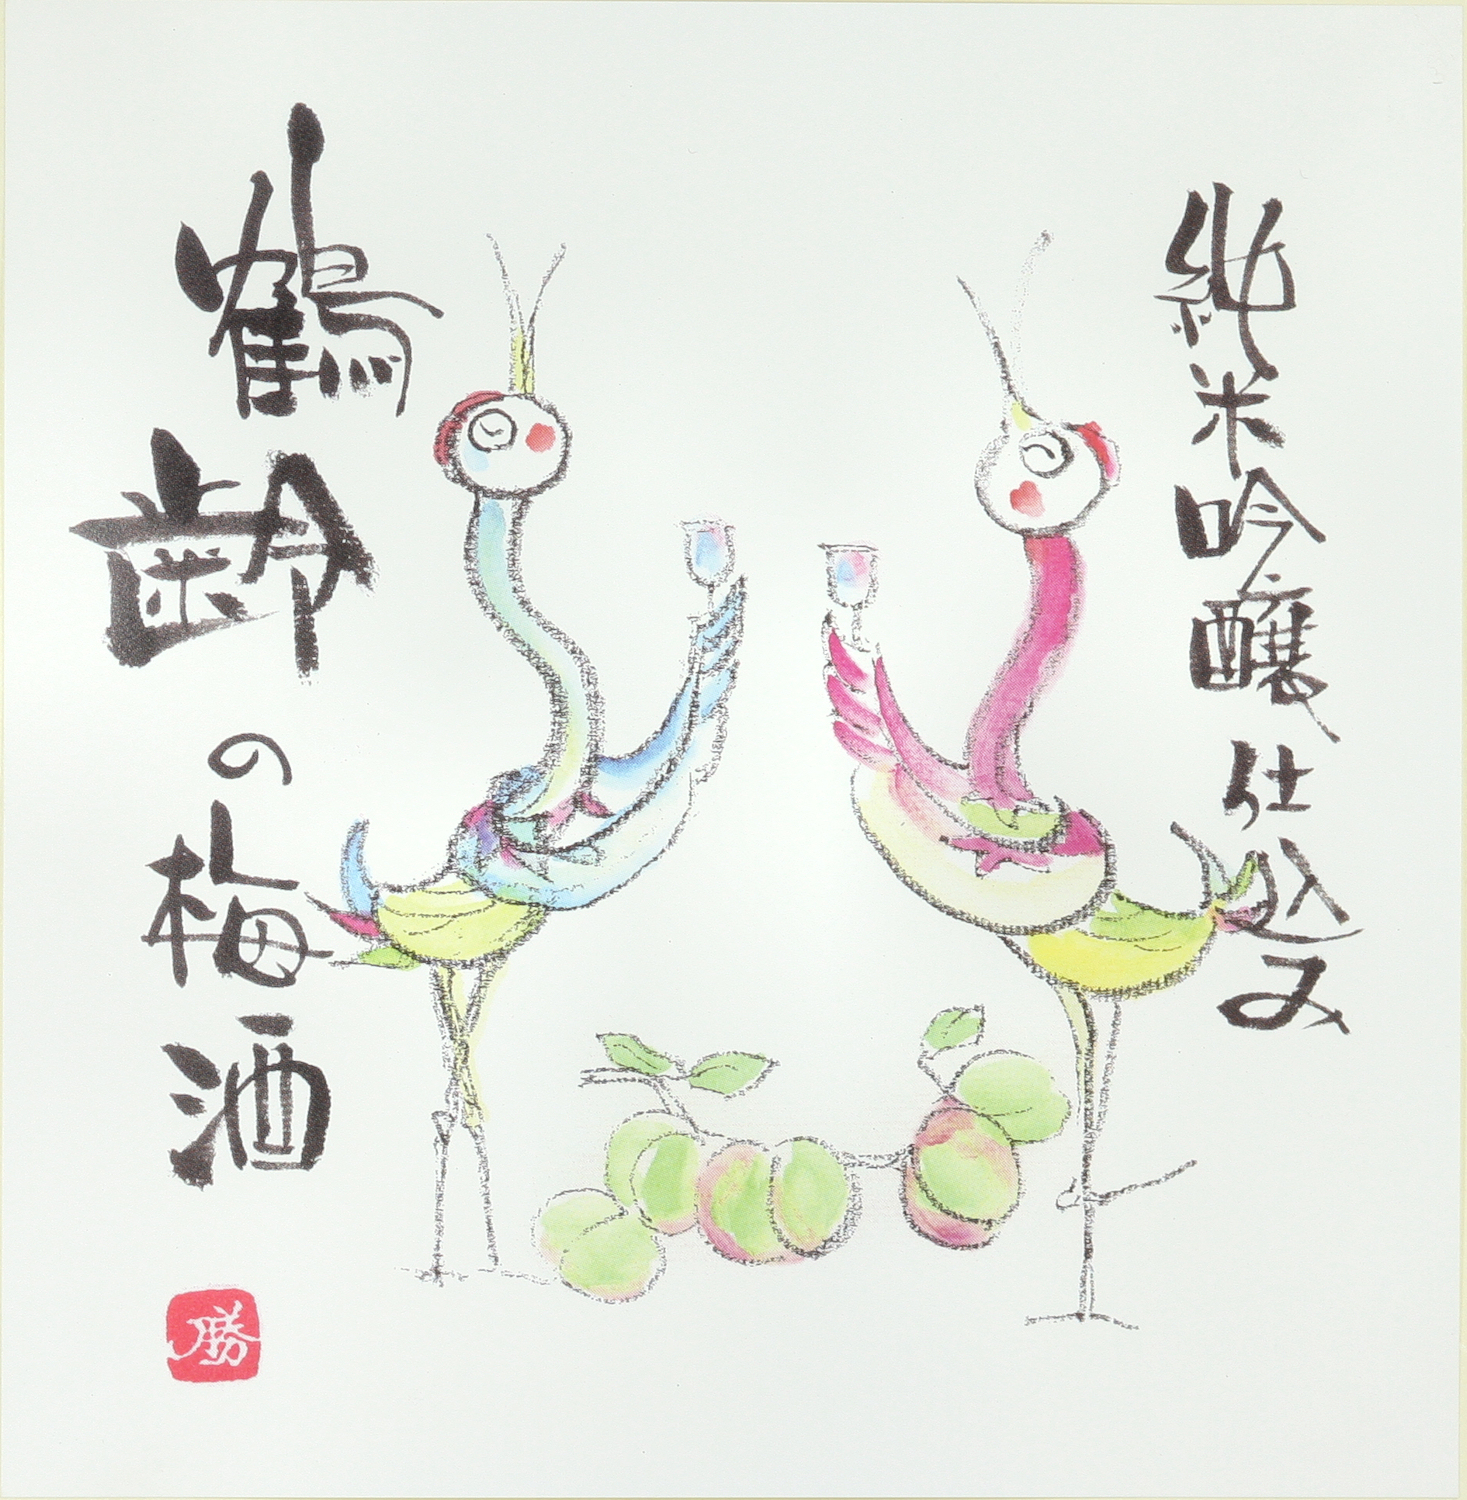 純米吟醸仕込み
鶴齢の梅酒
勝